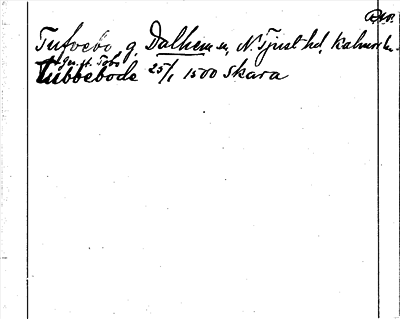 Tufvebo g. Dalhem sn, N. Tjust hd, Kalmar län.
gm. st. Tobo
Tubbebode 25/1 1500 Skara